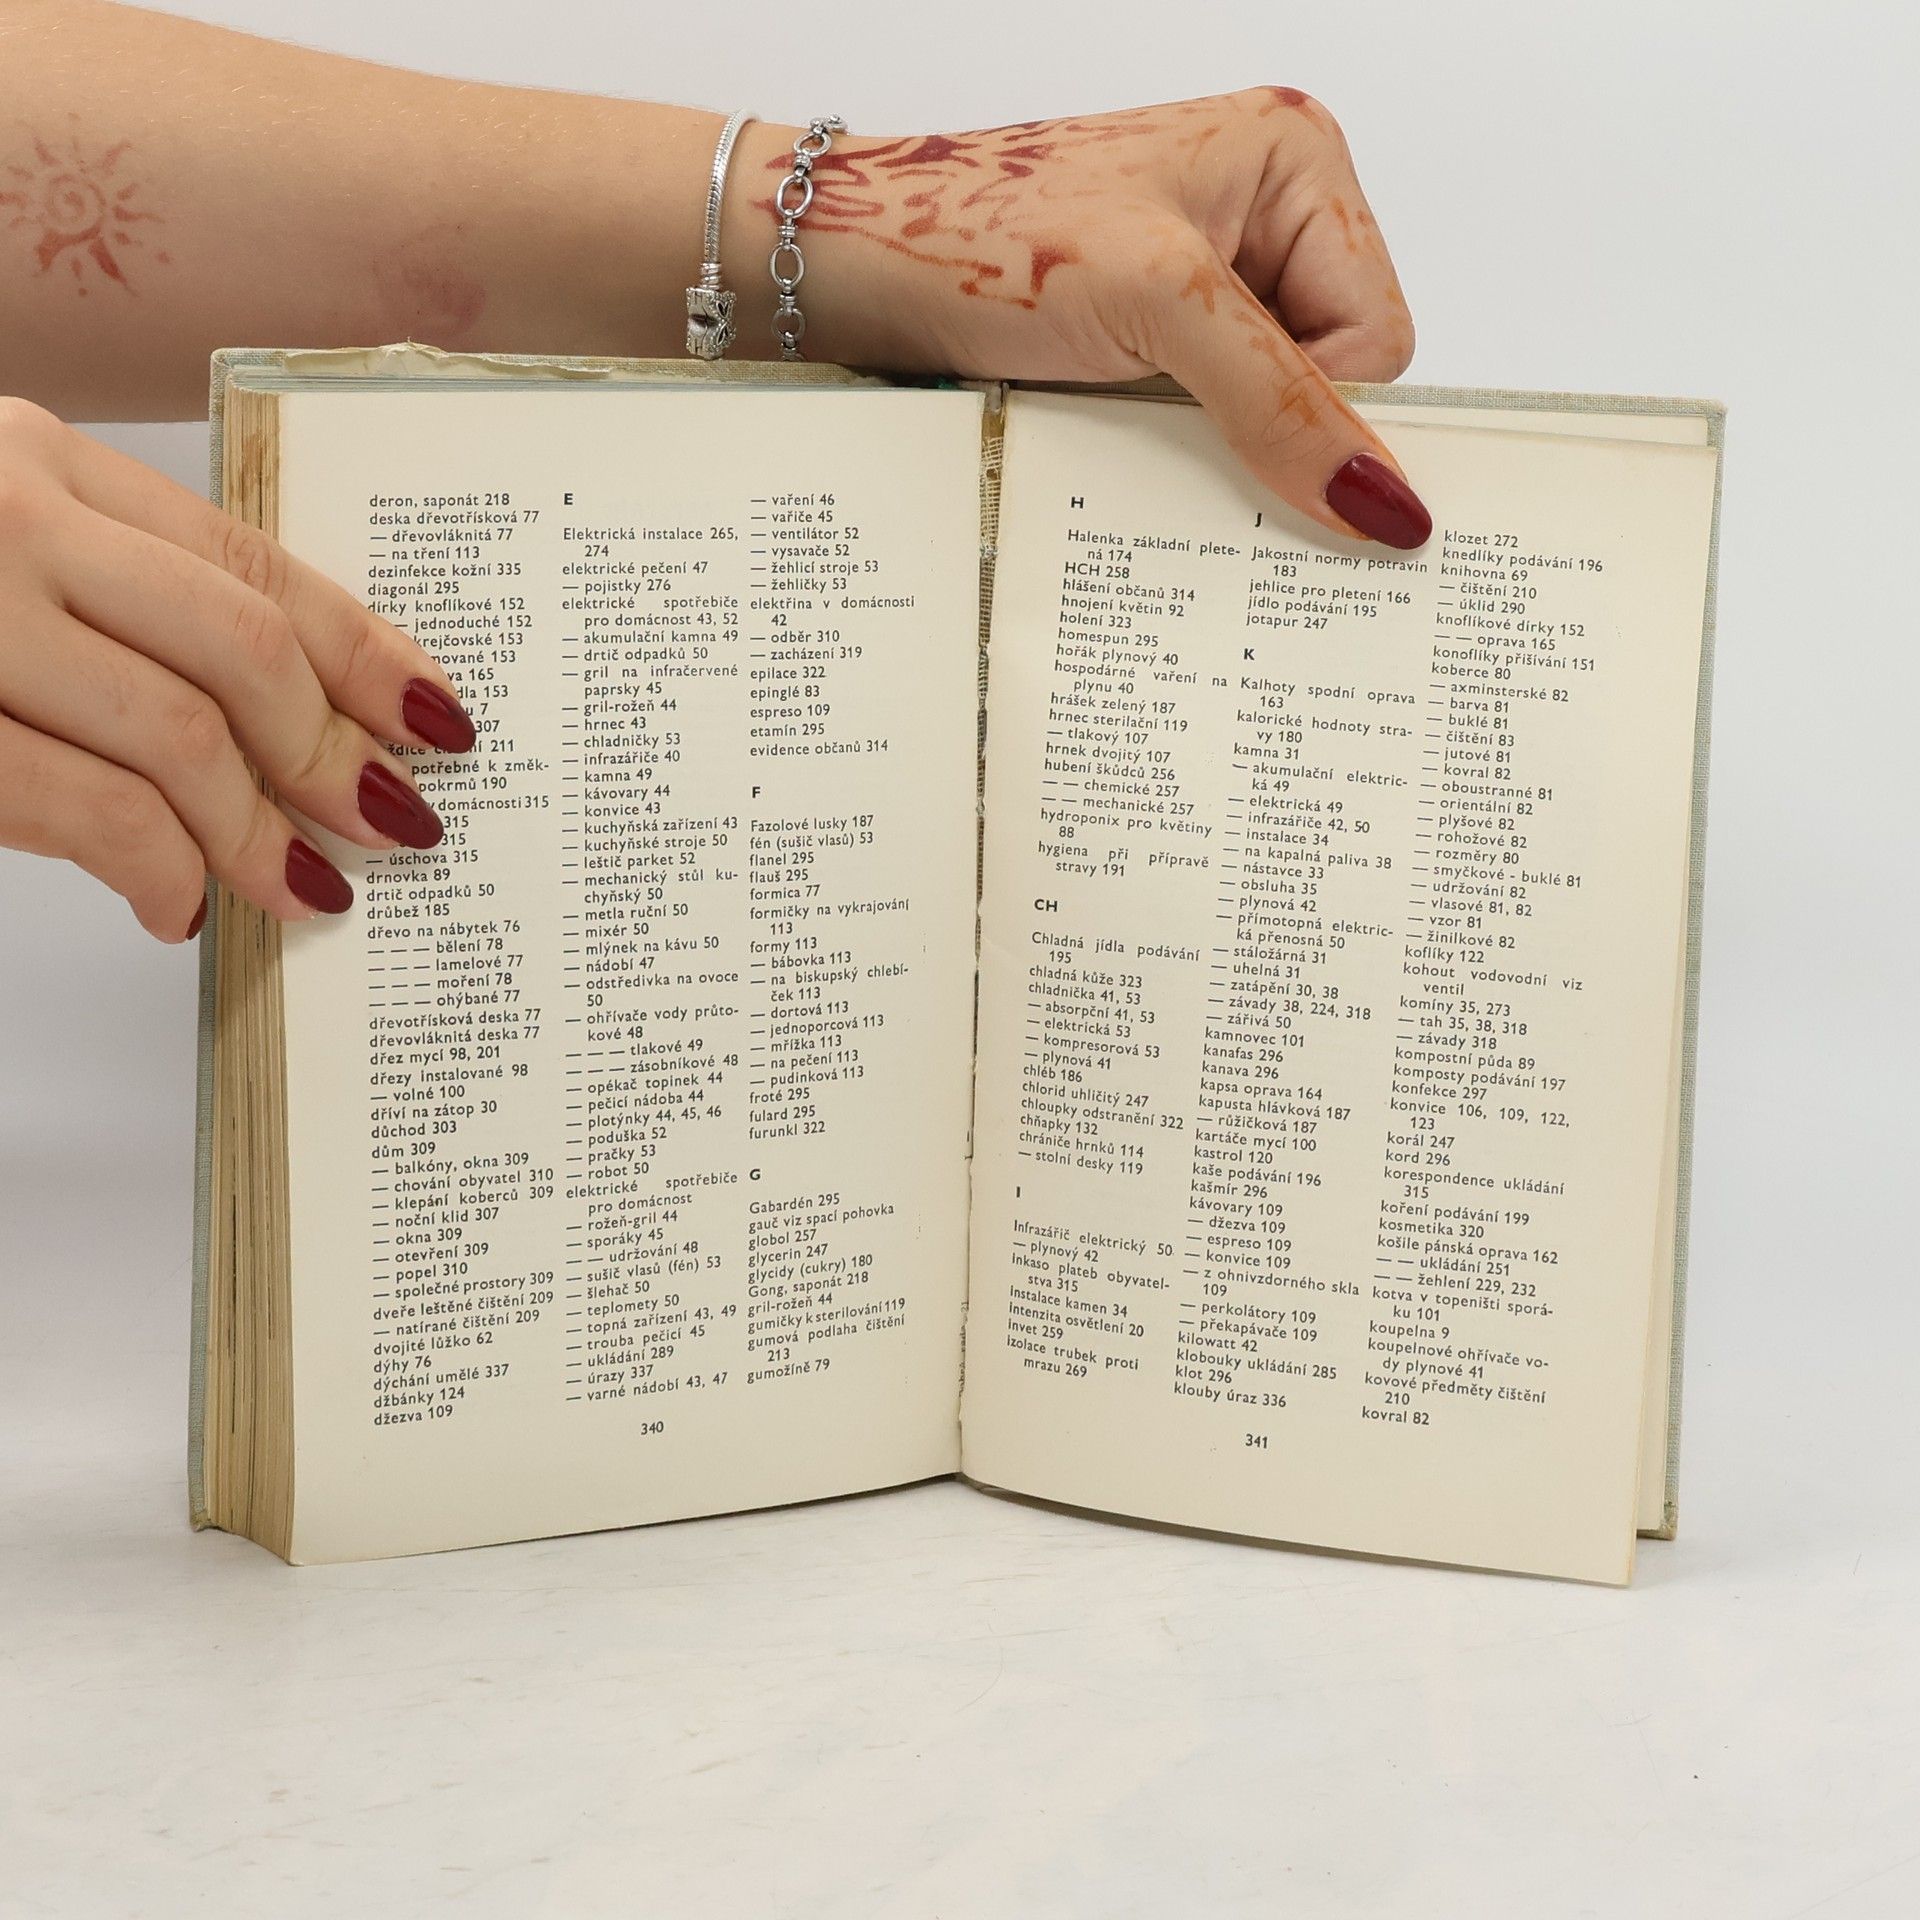 deron, saponát 218
deska dřevotřísková 77
— dřevovláknitá 77
— na tření 113
dezinfekce kožní 335
diagonál 295
dírky knoflíkové 152
— jednoduché 152
krejčovské 153
153
165
153
7
307
211
potřebné k změk-
pokrmů 190
v domácnosti 315
315
315
— úschova 315
drnovka 89
drtič odpadků 50
drůbež 185
dřevo na nábytek 76
— — — bělení 78
— — — lamelové 77
— — — moření 78
— — — ohýbané 77
dřevotřísková deska 77
dřevovláknitá deska 77
dřez mycí 98, 201
dřezy instalované 98
— volné 100
dříví na zátop 30
důchod 303
dům 309
— balkóny, okna 309
— chování obyvatel 310
— klepání koberců 309
— noční klid 307
— okna 309
— otevření 309
— popel 310
— společné prostory 309
dveře leštěné čištění 209
— natírané čištění 209
dvojité lůžko 62
dýhy 76
dýchání umělé 337
džbánky 124
džezva 109
E
Elektrická instalace 265,
274
elektrické pečení 47
— pojistky 276
elektrické spotřebiče
pro domácnost 43, 52
— akumulační kamna 49
— drtič odpadků 50
— gril na infračervené
paprsky 45
— gril-rožeň 44
— hrnec 43
— chladničky 53
— infrazářiče 40
— kamna 49
— kávovary 44
— konvice 43
— kuchyňská zařízení 43
— kuchyňské stroje 50
— leštič parket 52
— mechanický stůl ku-
chyňský 50
— metla ruční 50
— mixér 50
— mlýnek na kávu 50
— nádobí 47
— odstředivka na ovoce
50
— ohřívače vody průto-
kové 48
— — — tlakové 49
— — — zásobníkové 48
— opékač topinek 44
— pečicí nádoba 44
— plotýnky 44, 45, 46
— poduška 52
— pračky 53
— robot 50
elektrické spotřebiče
pro domácnost
— rožeň-gril 44
— sporáky 45
— — udržování 48
— sušič vlasů (fén) 53
— šlehač 50
— teplomety 50
— topná zařízení 43, 49
— trouba pečicí 45
— ukládání 289
— úrazy 337
— varné nádobí 43, 47
— vaření 46
— vařiče 45
— ventilátor 52
— vysavače 52
— žehlicí stroje 53
— žehličky 53
elektřina v domácnosti
42
— odběr 310
— zacházení 319
epilace 322
epinglé 83
espreso 109
etamín 295
evidence občanů 314
F
Fazolové lusky 187
fén (sušič vlasů) 53
flanel 295
flauš 295
formica 77
formičky na vykrajování
113
formy 113
— bábovka 113
— na biskupský chlebí-
ček 113
— dortová 113
— jednoporcová 113
— mřížka 113
— na pečení 113
— pudinková 113
froté 295
fulard 295
furunkl 322
G
Gabardén 295
gauč viz spací pohovka
globol 257
glycerin 247
glycidy (cukry) 180
Gong, saponát 218
gril-rožeň 44
gumičky k sterilování 119
gumová podlaha čištění
213
gumožíně 79
340
H
Halenka základní plete-
ná 174
HCH 258
hlášení občanů 314
hnojení květin 92
holení 323
homespun 295
hořák plynový 40
hospodárné vaření na
plynu 40
hrášek zelený 187
hrnec sterilační 119
— tlakový 107
hrnek dvojitý 107
hubení škůdců 256
— — chemické 257
— — mechanické 257
hydroponix pro květiny
88
hygiena při přípravě
stravy 191
CH
Chladná jídla podávání
195
chladná kůže 323
chladnička 41, 53
— absorpční 41, 53
— elektrická 53
— kompresorová 53
— plynová 41
chléb 186
chlorid uhličitý 247
chloupky odstranění 322
chňapky 132
chrániče hrnků 114
— stolní desky 119
I
Infrazářič elektrický 50
— plynový 42
inkaso plateb obyvatel-
stva 315
instalace kamen 34
intenzita osvětlení 20
invet 259
izolace trubek proti
mrazu 269
J
Jakostní normy potravin
183
jehlice pro pletení 166
jídlo podávání 195
jotapur 247
K
Kalhoty spodní oprava
163
kalorické hodnoty stra-
vy 180
kamna 31
— akumulační elektric-
ká 49
— elektrická 49
— infrazářiče 42, 50
— instalace 34
— na kapalná paliva 38
— nástavce 33
— obsluha 35
— plynová 42
— přímotopná elektric-
ká přenosná 50
— stáložárná 31
— uhelná 31
— zatápění 30, 38
— závady 38, 224, 318
— zářivá 50
kamnovec 101
kanafas 296
kanava 296
kapsa oprava 164
kapusta hlávková 187
— růžičková 187
kartáče mycí 100
kastrol 120
kaše podávání 196
kašmír 296
kávovary 109
— džezva 109
— espreso 109
— konvice 109
— z ohnivzdorného skla
109
— perkolátory 109
— překapávače 109
kilowatt 42
klobouky ukládání 285
klot 296
klouby úraz 336
klozet 272
knedlíky podávání 196
knihovna 69
— čištění 210
— úklid 290
knoflíkové dírky 152
— — oprava 165
konoflíky přišívání 151
koberce 80
— axminsterské 82
— barva 81
— buklé 81
— čištění 83
— jutové 81
— kovral 82
— oboustranné 81
— orientální 82
— plyšové 82
— rohožové 82
— rozměry 80
— smyčkové - buklé 81
— udržování 82
— vlasové 81, 82
— vzor 81
— žinilkové 82
koflíky 122
kohout vodovodní viz
ventil
komíny 35, 273
— tah 35, 38, 318
— závady 318
kompostní půda 89
komposty podávání 197
konfekce 297
konvice 106, 109, 122,
123
korál 247
kord 296
korespondence ukládání
315
koření podávání 199
kosmetika 320
košile pánská oprava 162
— — ukládání 251
— — žehlení 229, 232
kotva v topeništi sporá-
ku 101
koupelna 9
koupelnové ohřívače vo-
dy plynové 41
kovové předměty čištění
210
kovral 82
341